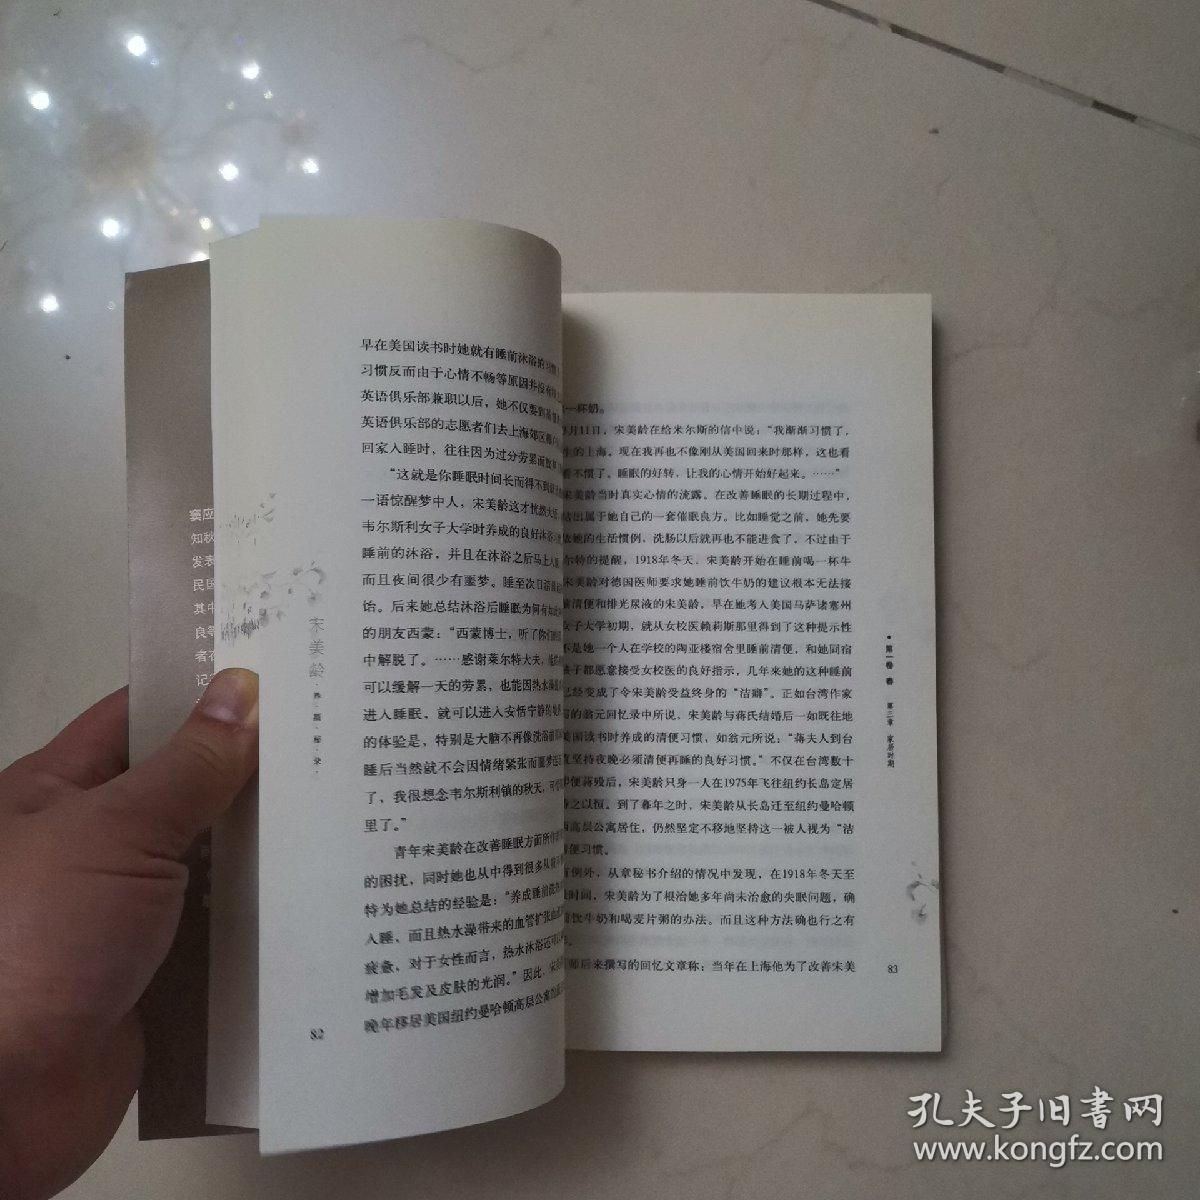 窦应
知秋
发表
民国
其中
良等
者在
记
早在美国读书时她就有睡前沐浴的习惯
习惯反而由于心情不畅等原因并没有
英语俱乐部兼职以后，她不仅要到
英语俱乐部的志愿者们去上海郊区
回家入睡时，往往因为过分劳累而
“这就是你睡眠时间长而得不到
一语惊醒梦中人，宋美龄这才恍然大
韦尔斯利女子大学时养成的良好沐浴
睡前的沐浴，并且在沐浴之后马上入
而且夜间很少有噩梦。睡至次日
怡。后来她总结沐浴后睡眠为何有如此
的朋友西蒙：“西蒙博士，听了你们
中解脱了。……感谢莱尔特大夫，
可以缓解一天的劳累，也能因热水澡
进入睡眠，就可以进入安恬宁静的
的体验是，特别是大脑不再像洗浴前
睡后当然就不会因情绪紧张而噩梦连
了，我很想念韦尔斯利镇的秋天，可
里了。”
青年宋美龄在改善睡眠方面所作
的困扰，同时她也从中得到很多从
特为她总结的经验是：“养成睡前
入睡，而且热水澡带来的血管扩张
疲惫，对于女性而言，热水沐浴还可
增加毛发及皮肤的光润。”因此，宋
晚年移居美国纽约曼哈顿高层公寓
82
宋美龄
·养·颜·秘·录·
一杯奶。
月11日，宋美龄在给米尔斯的信中说：“我渐渐习惯了，
生的上海。现在我再也不像刚从美国回来时那样，这也看
看不惯了。睡眠的好转，让我的心情开始好起来。……”
宋美龄当时真实心情的流露。在改善睡眠的长期过程中，
出属于她自己的一套催眠良方。比如睡觉之前，她先要
她的生活惯例，洗肠以后就再也不能进食了。不过由于
尔特的提醒，1918年冬天，宋美龄开始在睡前喝一杯牛
宋美龄对德国医师要求她睡前饮牛奶的建议根本无法接
前清便和排光尿液的宋美龄，早在她考入美国马萨诸塞州
女子大学初期，就从女校医赖莉斯那里得到了这种提示性
不是她一个人在学校的陶亚楼宿舍里睡前清便，和她同宿
孩子都愿意接受女校医的良好指示，几年来她的这种睡前
已经变成了令宋美龄受益终身的“洁癖”。正如台湾作家
的翁元回忆录中所说，宋美龄与蒋氏结婚后一如既往地
美国读书时养成的清便习惯，如翁元所说：“蒋夫人到台
直坚持夜晚必须清便再睡的良好习惯。”不仅在台湾数十
即便蒋殁后，宋美龄只身一人在1975年飞往纽约长岛定居
持之以恒。到了暮年之时，宋美龄从长岛迁至纽约曼哈顿
高层公寓居住，仍然坚定不移地坚持这一被人视为“洁
便习惯。
有例外，从章秘书介绍的情况中发现，在1918年冬天至
段时间，宋美龄为了根治她多年尚未治愈的失眠问题，确
饮牛奶和喝麦片粥的办法。而且这种方法确也行之有
师后来撰写的回忆文章称：当年在上海他为了改善宋美
83
·第一卷 春 第三章 家居时期
孔夫子旧书网
www.kongfz.com